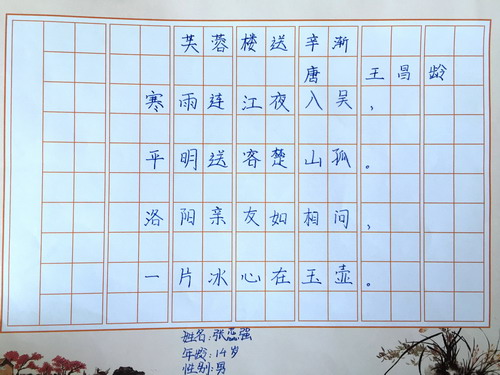 芙蓉楼送辛渐
唐 王昌龄
寒雨连江夜入吴，
平明送客楚山孤。
洛阳亲友如相问，
一片冰心在玉壶。
姓名:张蕊强
年龄:14岁
性别:男